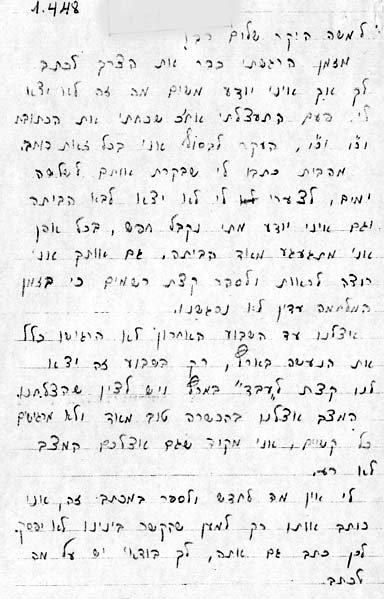 1.4.48
למשה היקר שלום רב!
מזמן הרגשתי כבר את הצרך לכתב
לך אך איני יודע משום מה זה לא יצא
לי. פעם התעצלתי אח"כ שכחתי את הכתובת
וכו' וכו', העקר לבסוף אני בכל זאת כותב.
מהבית כתבו לי שבקרת אותם לשלשה
ימים, לצערי לי לא יצא לבא הביתה
וגם איני יודע מתי נקבל חפש, בכל אופן
אני מתגעגע מאוד הביתה. גם אותך אני
רוצה לראות ולספר קצת רשמים כי בזמן
המלחמה עדין לא נפגשנו.
אצלנו עד השבוע האחרון לא הרגישו כלל
את הנעשה בארץ, רק בשבוע זה יצא
לנו קצת "לעבד" במרץ ויש לציין שהצלחנו.
המצב אצלנו בהכשרה טוב מאוד ולא מרגישים
כל קשיים, אני מקוה שגם אצלכם המצב
לא רע.
לי אין מה לחדש ולספר במכתב זה, אני
כותב אותו רק למען שהקשר בינינו לא יפסק.
לכן כתב גם אתה, לך בודאי יש על מה
לכתב.